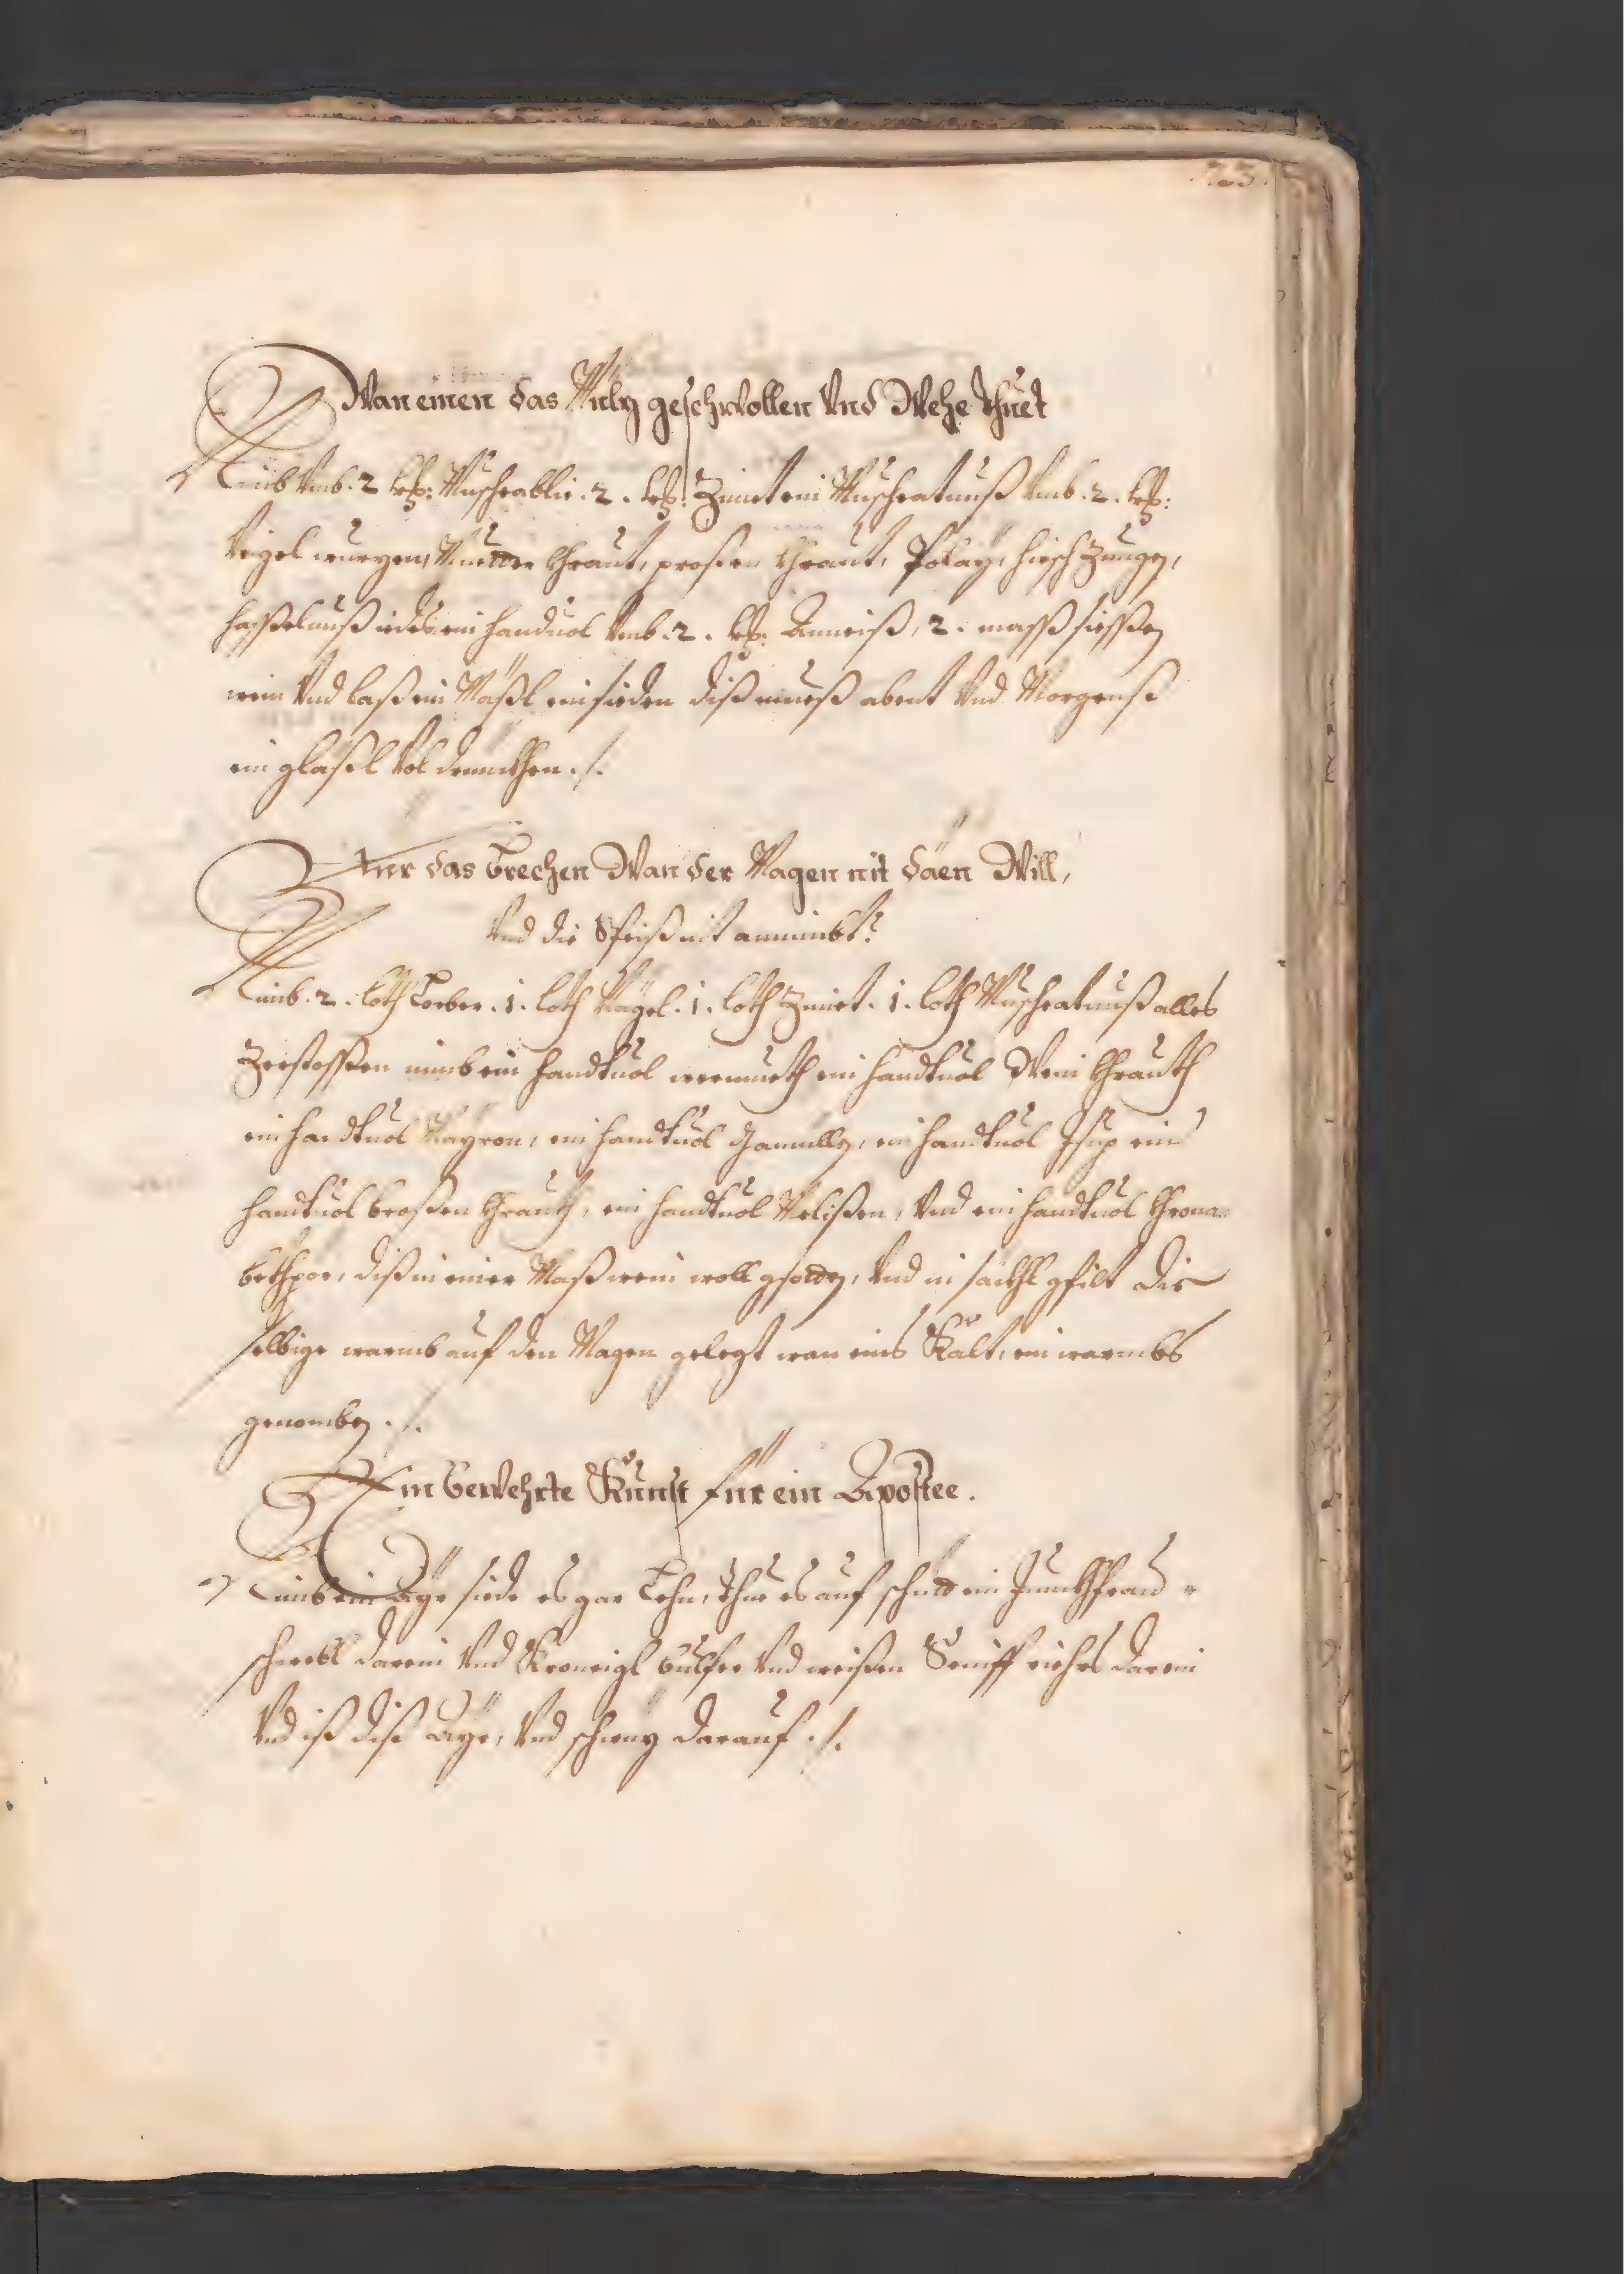 Wan einen das Milz geschwollen Vnd Wehe thuet
Nimb Vmb .2 kr: Muschcablüe .2. kr: Zimet ein Muschcatnuß Vmb .2. kr:
Veigel wurzen, Muetter Khraut, proßen Khraut, Polay, hirsch Zungen,
haßelnuß iedes ein handuol Vmb .2. kr: Anneiß, 2. mass siessen
wein Vnd laß ein Mäßl einsieden diß nueß abent Vnd Morgenß
ein gläßl Vol drinckhen ./.
Fier das brechen Wan der Magen nit däen Will,
Vnd die Speiß nit annimbt?
Nimb .2. loth Lorber .1. loth Nägel .1. loth Zimet .1. loth Muschcatnuß alles
Zerstossen nimb ein handtuol wermueth ein handtuol Wein Khrauth
ein handtuol Mayron, ein handtuol Gamilln, ein handtuol Isup ein
handtuol broßen Khrauth, ein handtuol Melißen, Vnd ein handtuol Khrona=
bethper, diß in einer Maß wein woll gsotten, Vnd in säckhl gfilt die
selbige warmb auf den Magen gelegt wan eins Kalt, ein warmbs
genomben ./.
Ein bewehrte Kunst für ein Apostee.
Nimb ein Ayr siede es gar Lehn, thue es auf schitt ein Junckhfrau=
schwebl darein Vnd Kroneigl bulfer Vnd weißen Seniff riehrs darein
Vnd iß diß Ayr, Vnd schwiz darauf ./.